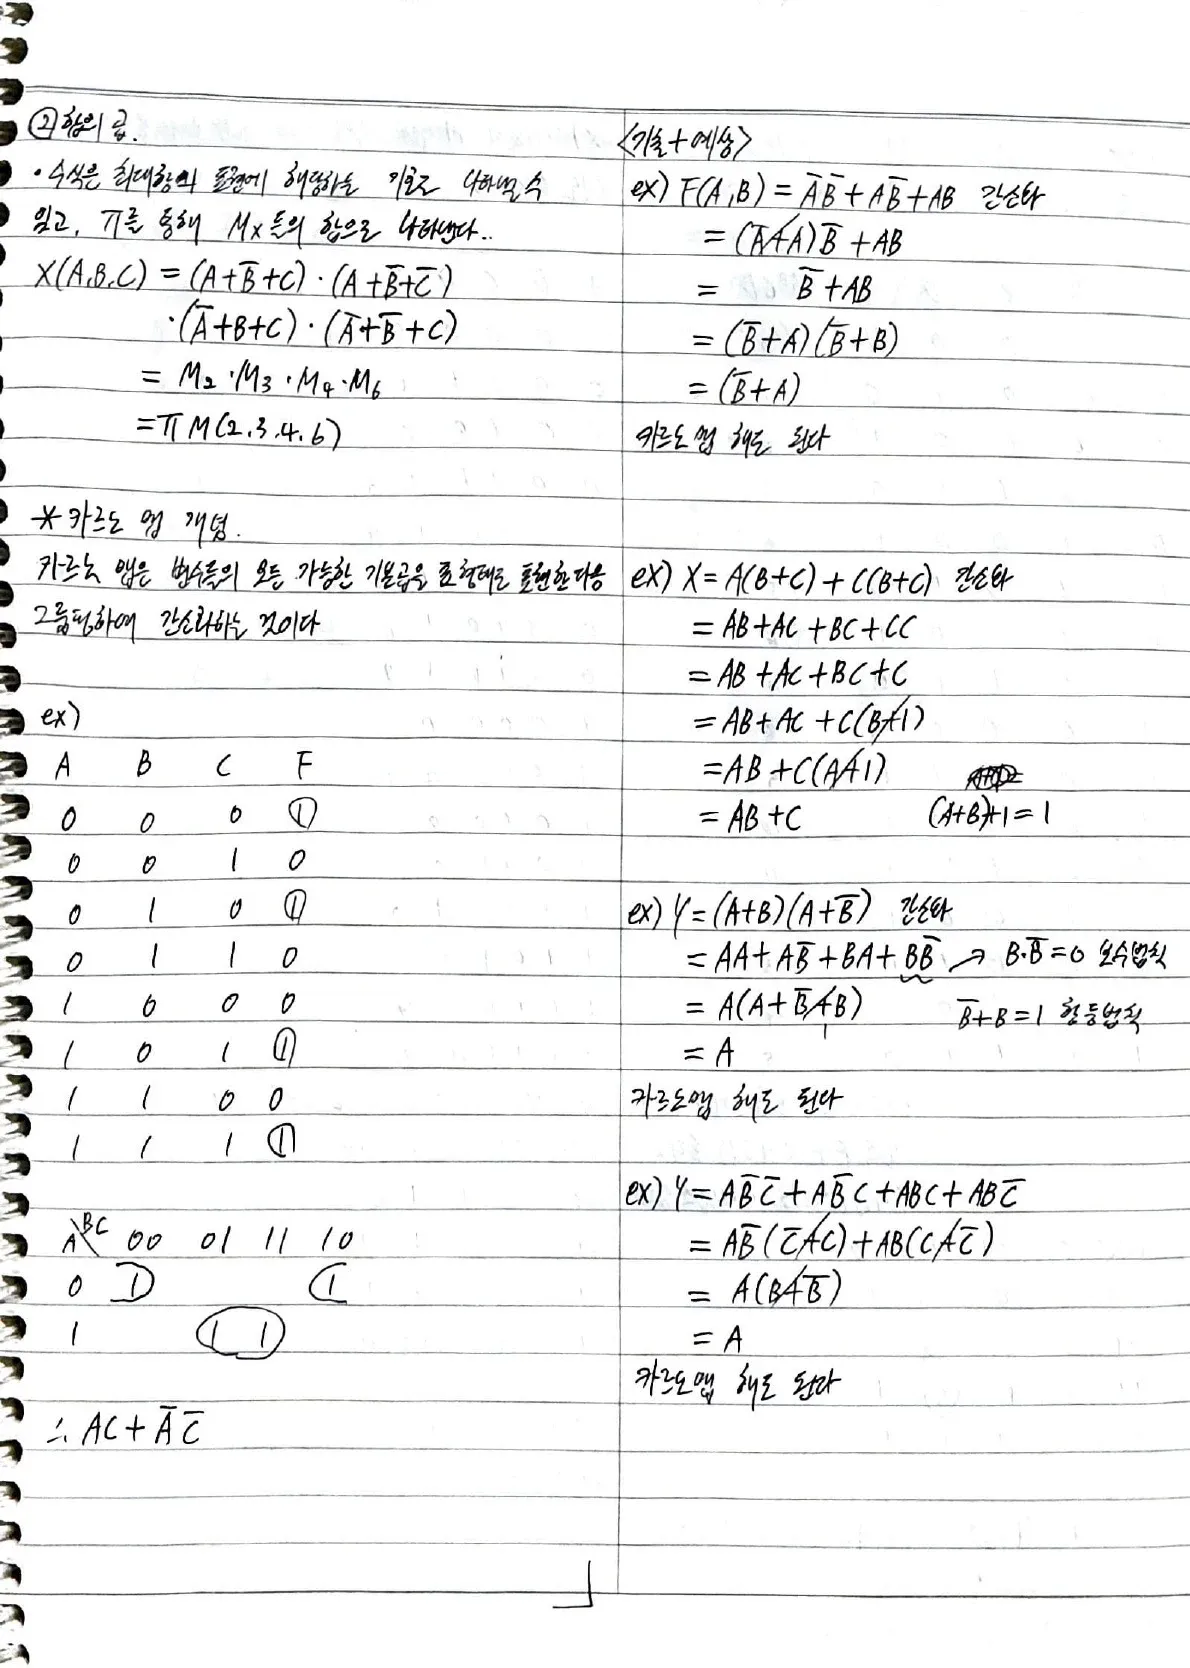 ② 합의 곱.
· 수식은 최대항의 표현에 해당하는 기호로 나타낼 수
있고, π를 통해 Mx들의 합으로 나타낸다..
X(A,B,C) = (A+B̅+C)·(A+B̅+C̅)
·(A̅+B+C)·(A̅+B̅+C)
= M₂·M₃·M₄·M₆
=π M(2.3.4.6)
* 카르노 맵 개념.
카르노 맵은 변수들의 모든 가능한 기본곱을 표 형태로 표현한 다음
그룹핑하여 간소화하는 것이다
ex)
A B C F
0 0 0 1
0 0 1 0
0 1 0 1
0 1 1 0
1 0 0 0
1 0 1 1
1 1 0 0
1 1 1 1
A\BC 00 01 11 10
0 1 1
1 1 1
∴ AC+A̅ C̅
<기출+예상>
ex) F(A,B) = A̅B̅+AB̅+AB 간소화
= (A̅+A)B̅+AB
= B̅+AB
= (B̅+A)(B̅+B)
= (B̅+A)
카르노맵 해도 된다
ex) X= A(B+C)+C(B+C) 간소화
= AB+AC+BC+CC
= AB+AC+BC+C
= AB+AC+C(B+1)
=AB+C(A+1)
= AB+C (A+B)+1=1
ex) Y=(A+B)(A+B̅) 간소화
= AA+AB̅+BA+BB̅ → B·B̅=0 보수법칙
= A(A+B̅+B) B̅+B=1 항등법칙
1
= A
카르노맵 해도 된다
ex) Y= AB̅C̅+AB̅C+ABC+ABC̅
= AB̅(C̅+C)+AB(C+C̅)
= A(B+B̅)
= A
카르노맵 해도 된다